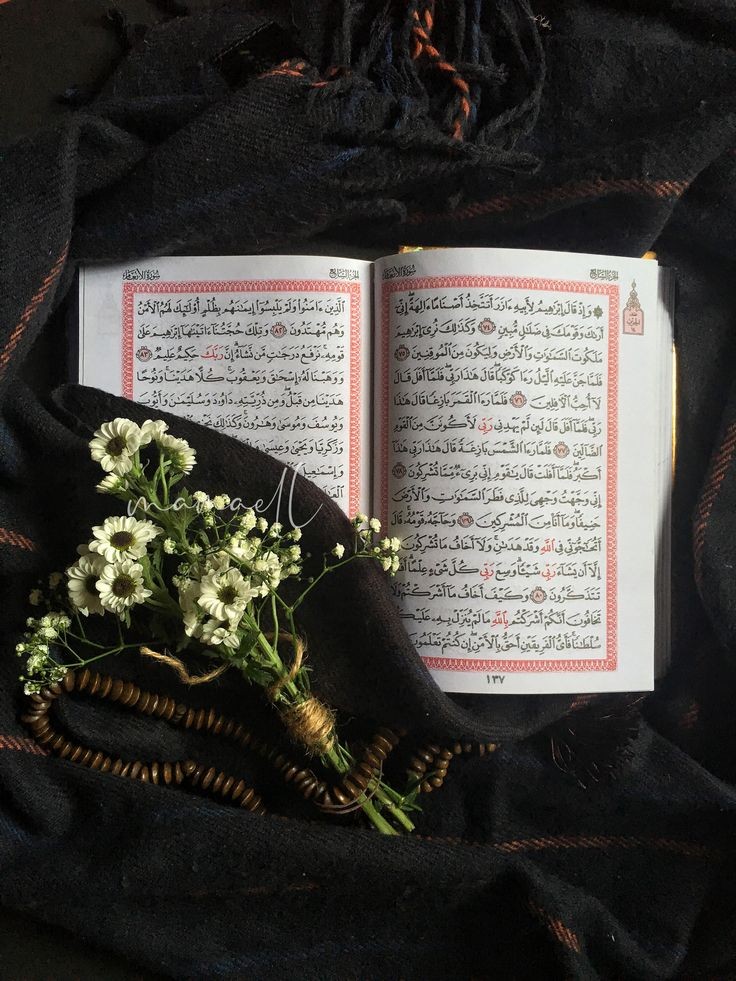 الجزء السابع
سورة الأنعام
۞ وَإِذْ قَالَ إِبْرَٰهِيمُ لِأَبِيهِ ءَازَرَ أَتَتَّخِذُ أَصْنَامًا ءَالِهَةً إِنِّىٓ
أَرَىٰكَ وَقَوْمَكَ فِى ضَلَٰلٍ مُّبِينٍ ٧٤ وَكَذَٰلِكَ نُرِىٓ إِبْرَٰهِيمَ
مَلَكُوتَ ٱلسَّمَٰوَٰتِ وَٱلْأَرْضِ وَلِيَكُونَ مِنَ ٱلْمُوقِنِينَ ٧٥
فَلَمَّا جَنَّ عَلَيْهِ ٱلَّيْلُ رَءَا كَوْكَبًا قَالَ هَٰذَا رَبِّى فَلَمَّآ أَفَلَ قَالَ
لَآ أُحِبُّ ٱلْءَافِلِينَ ٧٦ فَلَمَّا رَءَا ٱلْقَمَرَ بَازِغًا قَالَ هَٰذَا
رَبِّى فَلَمَّآ أَفَلَ قَالَ لَئِن لَّمْ يَهْدِنِى رَبِّى لَأَكُونَنَّ مِنَ ٱلْقَوْمِ
ٱلضَّآلِّينَ ٧٧ فَلَمَّا رَءَا ٱلشَّمْسَ بَازِغَةً قَالَ هَٰذَا رَبِّى هَٰذَآ
أَكْبَرُ فَلَمَّآ أَفَلَتْ قَالَ يَٰقَوْمِ إِنِّى بَرِىٓءٌ مِّمَّا تُشْرِكُونَ ٧٨
إِنِّى وَجَّهْتُ وَجْهِىَ لِلَّذِى فَطَرَ ٱلسَّمَٰوَٰتِ وَٱلْأَرْضَ
حَنِيفًا وَمَآ أَنَا۠ مِنَ ٱلْمُشْرِكِينَ ٧٩ وَحَآجَّهُۥ قَوْمُهُۥ قَالَ
أَتُحَٰٓجُّوٓنِّى فِى ٱللَّهِ وَقَدْ هَدَىٰنِ وَلَآ أَخَافُ مَا تُشْرِكُونَ
إِلَّآ أَن يَشَآءَ رَبِّى شَيْـًٔا وَسِعَ رَبِّى كُلَّ شَىْءٍ عِلْمًا
تَتَذَكَّرُونَ ٨٠ وَكَيْفَ أَخَافُ مَآ أَشْرَكْتُمْ وَلَا
تَخَافُونَ أَنَّكُمْ أَشْرَكْتُم بِٱللَّهِ مَا لَمْ يُنَزِّلْ بِهِۦ
سُلْطَٰنًا فَأَىُّ ٱلْفَرِيقَيْنِ أَحَقُّ بِٱلْأَمْنِ إِن كُنتُمْ تَعْلَمُونَ
١٣٧
الجزء السابع
سورة الأنعام
ٱلَّذِينَ ءَامَنُوا۟ وَلَمْ يَلْبِسُوٓا۟ إِيمَٰنَهُم بِظُلْمٍ أُو۟لَٰٓئِكَ لَهُمُ ٱلْأَمْنُ
وَهُم مُّهْتَدُونَ ٨٢ وَتِلْكَ حُجَّتُنَآ ءَاتَيْنَٰهَآ إِبْرَٰهِيمَ عَلَىٰ
قَوْمِهِۦ نَرْفَعُ دَرَجَٰتٍ مَّن نَّشَآءُ إِنَّ رَبَّكَ حَكِيمٌ عَلِيمٌ ٨٣
وَوَهَبْنَا لَهُۥٓ إِسْحَٰقَ وَيَعْقُوبَ كُلًّا هَدَيْنَا وَنُوحًا
هَدَيْنَا مِن قَبْلُ وَمِن ذُرِّيَّتِهِۦ دَاوُۥدَ وَسُلَيْمَٰنَ وَأَيُّوبَ
وَيُوسُفَ وَمُوسَىٰ وَهَٰرُونَ وَكَذَٰلِكَ
وَزَكَرِيَّا وَيَحْيَىٰ
وَإِسْمَٰعِيلَ